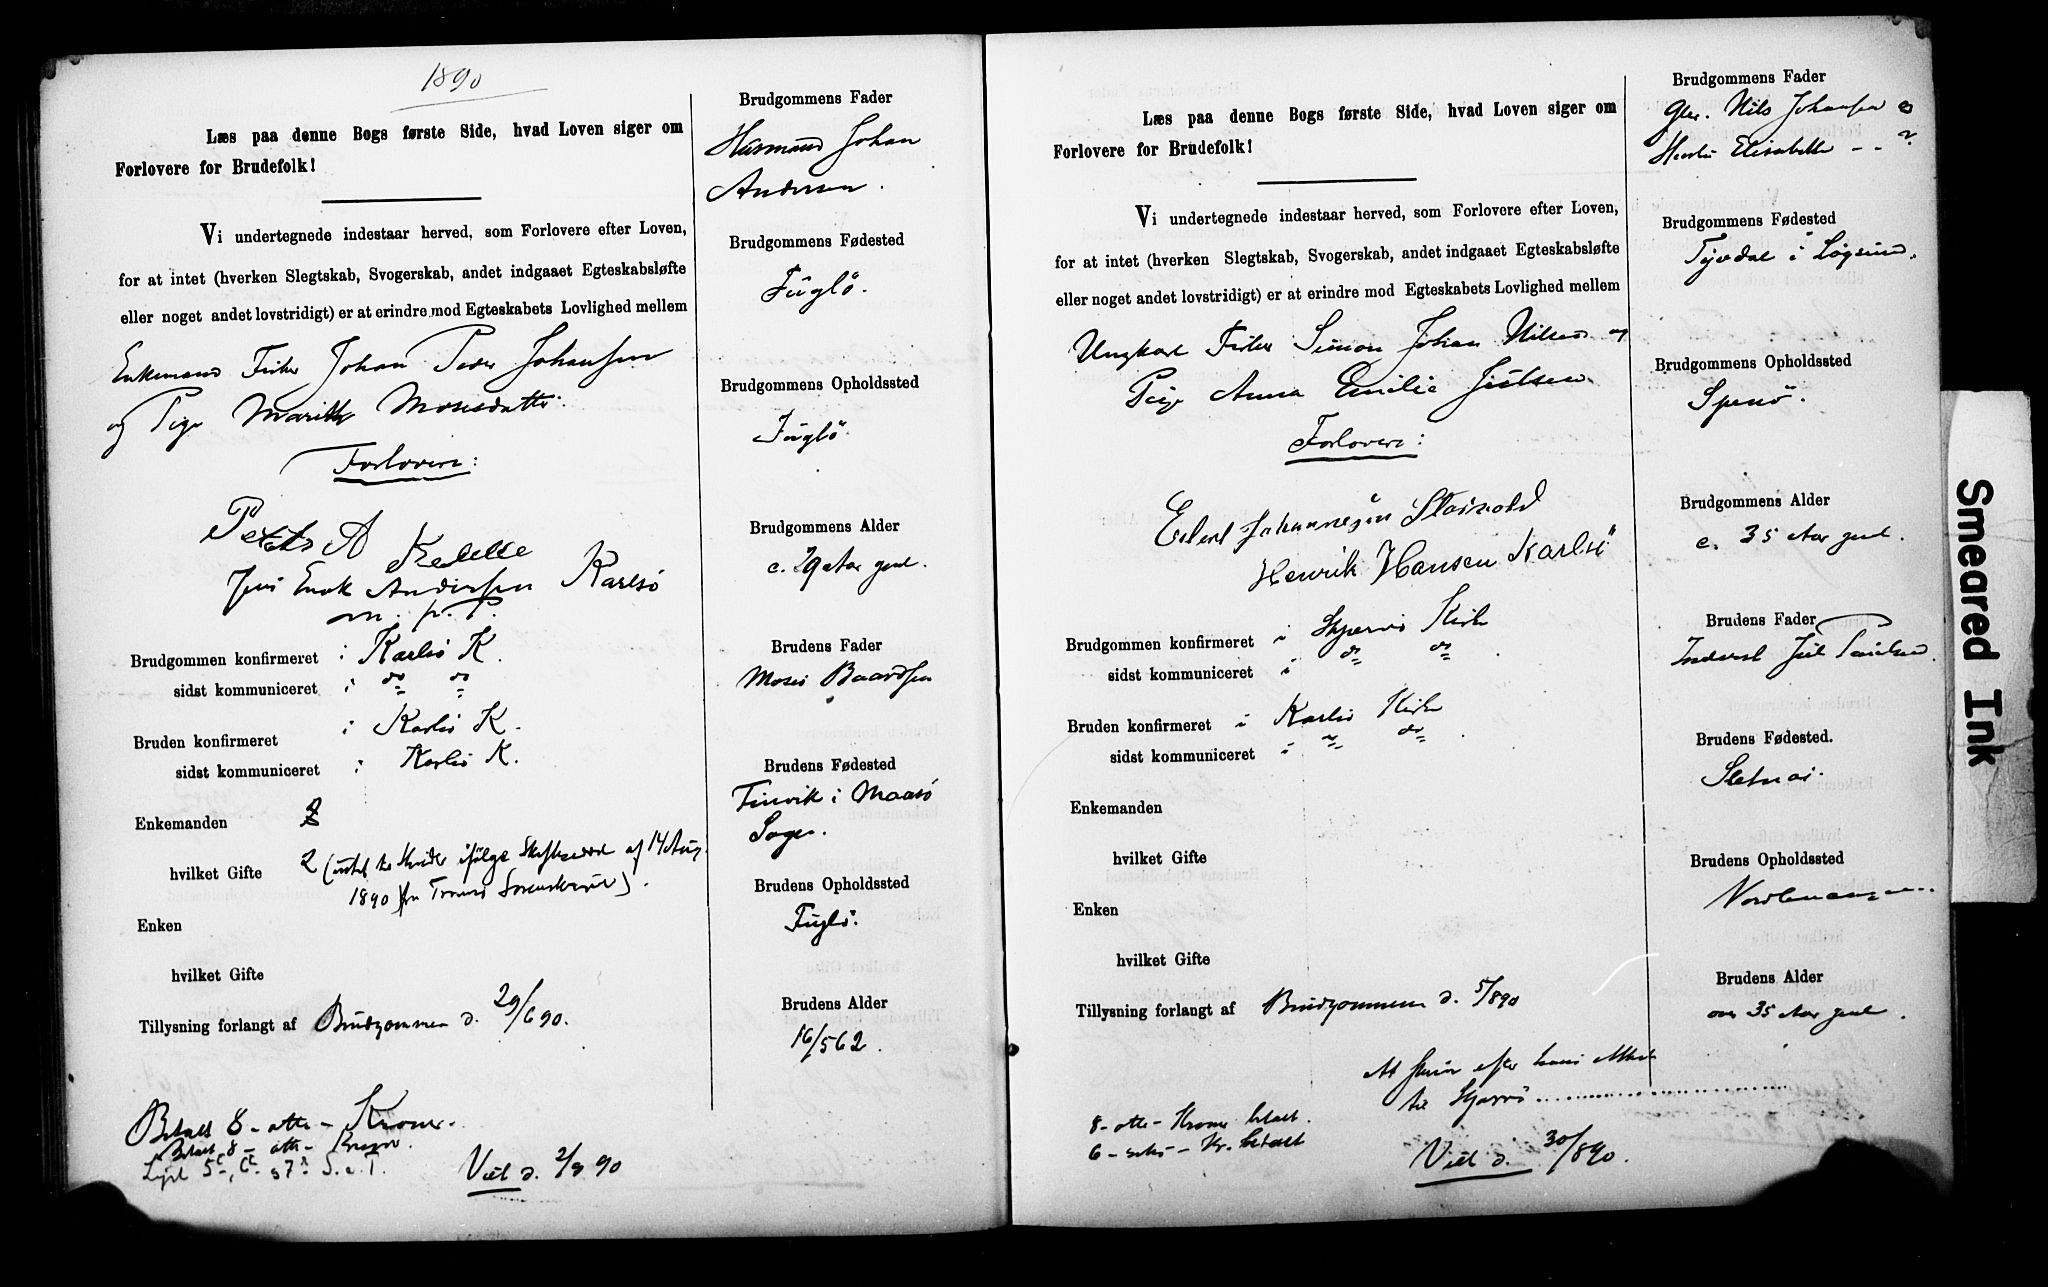 1890
Læs paa denne Bogs første Side, hvad Loven siger om
Forlovere for Brudefolk!
Vi undertegnede indestaar herved, som Forlovere efter Loven,
for at intet (hverken Slegtskab, Svogerskab, andet indgaaet Egteskabsløfte
eller noget andet lovstridigt) er at erindre mod Egteskabets Lovlighed mellem
Enkemand Fisker Johan Peder Johansen
og Pige Marith Mosesdatter.
Forlovere:
Peter A Kedelle
Jens Enok Andersen Karlsö
m. p. P.
Brudgommen konfirmeret i Karlsö K.
sidst kommuniceret i do do
Bruden konfirmeret i Karlsö K.
sidst kommuniceret i Karlsö K.
Enkemanden
hvilket Gifte 2 ( ifölge af 14 Aug.
1890 fra Tromsö Sorenskriver).
Enken
hvilket Gifte
Tillysning forlangt af Brudgommen d. 29/6 90.
Betalt 8 - otte - Kroner.
Betalt 8 - otte - Kroner
Lyst 5te, 6te, 7de S. e. T.
Viet d. 2/9 90
Brudgommens Fader
Husmand Johan
Andersen.
Brudgommens Fødested
Fuglö.
Brudgommens Opholdssted
Fuglö.
Brudgommens Alder
c. 29 Aar gml.
Brudens Fader
Moses Baardsen
Brudens Fødested
Finvik i Maasö
Sogn.
Brudens Opholdssted
Fuglö.
Brudens Alder
16/5 62.
Læs paa denne Bogs første Side, hvad Loven siger om
Forlovere for Brudefolk!
Vi undertegnede indestaar herved, som Forlovere efter Loven,
for at intet (hverken Slegtskab, Svogerskab, andet indgaaet Egteskabsløfte
eller noget andet lovstridigt) er at erindre mod Egteskabets Lovlighed mellem
Ungkarl Fisker Simon Johan Nilsen og
Pige Anna Emilie Julsen.
Forlovere:
Johannesen
Henrik Hansen Karlsö
Brudgommen konfirmeret i Skjervö Kirke
sidst kommuniceret i do do
Bruden konfirmeret i Karlsö Kirke
sidst kommuniceret i do do
Enkemanden
hvilket Gifte
Enken
hvilket Gifte
Tillysning forlangt af Brudgommen d. 5/8 90
At efter hans
til Skjervö
8 - otte - Kroner betalt.
6 - seks - Kr. betalt
Viet d. 30/8 90.
Brudgommens Fader
Nils Johansen &
Hustru Elisabeth - - ?
Brudgommens Fødested
i
Brudgommens Opholdssted
Spenö.
Brudgommens Alder
c. 35 Aar gml.
Brudens Fader
Inderst Jul Paulsen.
Brudens Fødested.
Sletnes.
Brudens Opholdssted
Brudens Alder
over 35 Aar gml.
Smeared Ink